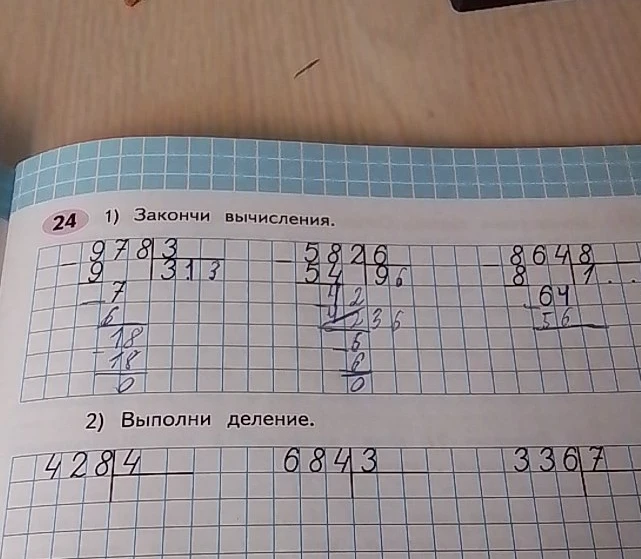 24 1) Закончи вычисления.
978 3 582 6 864 8
9 313 54 96 8 1..
7 42 64
6 236 56
18 6
18 6
0 0
2) Выполни деление.
428 4 684 3 336 7